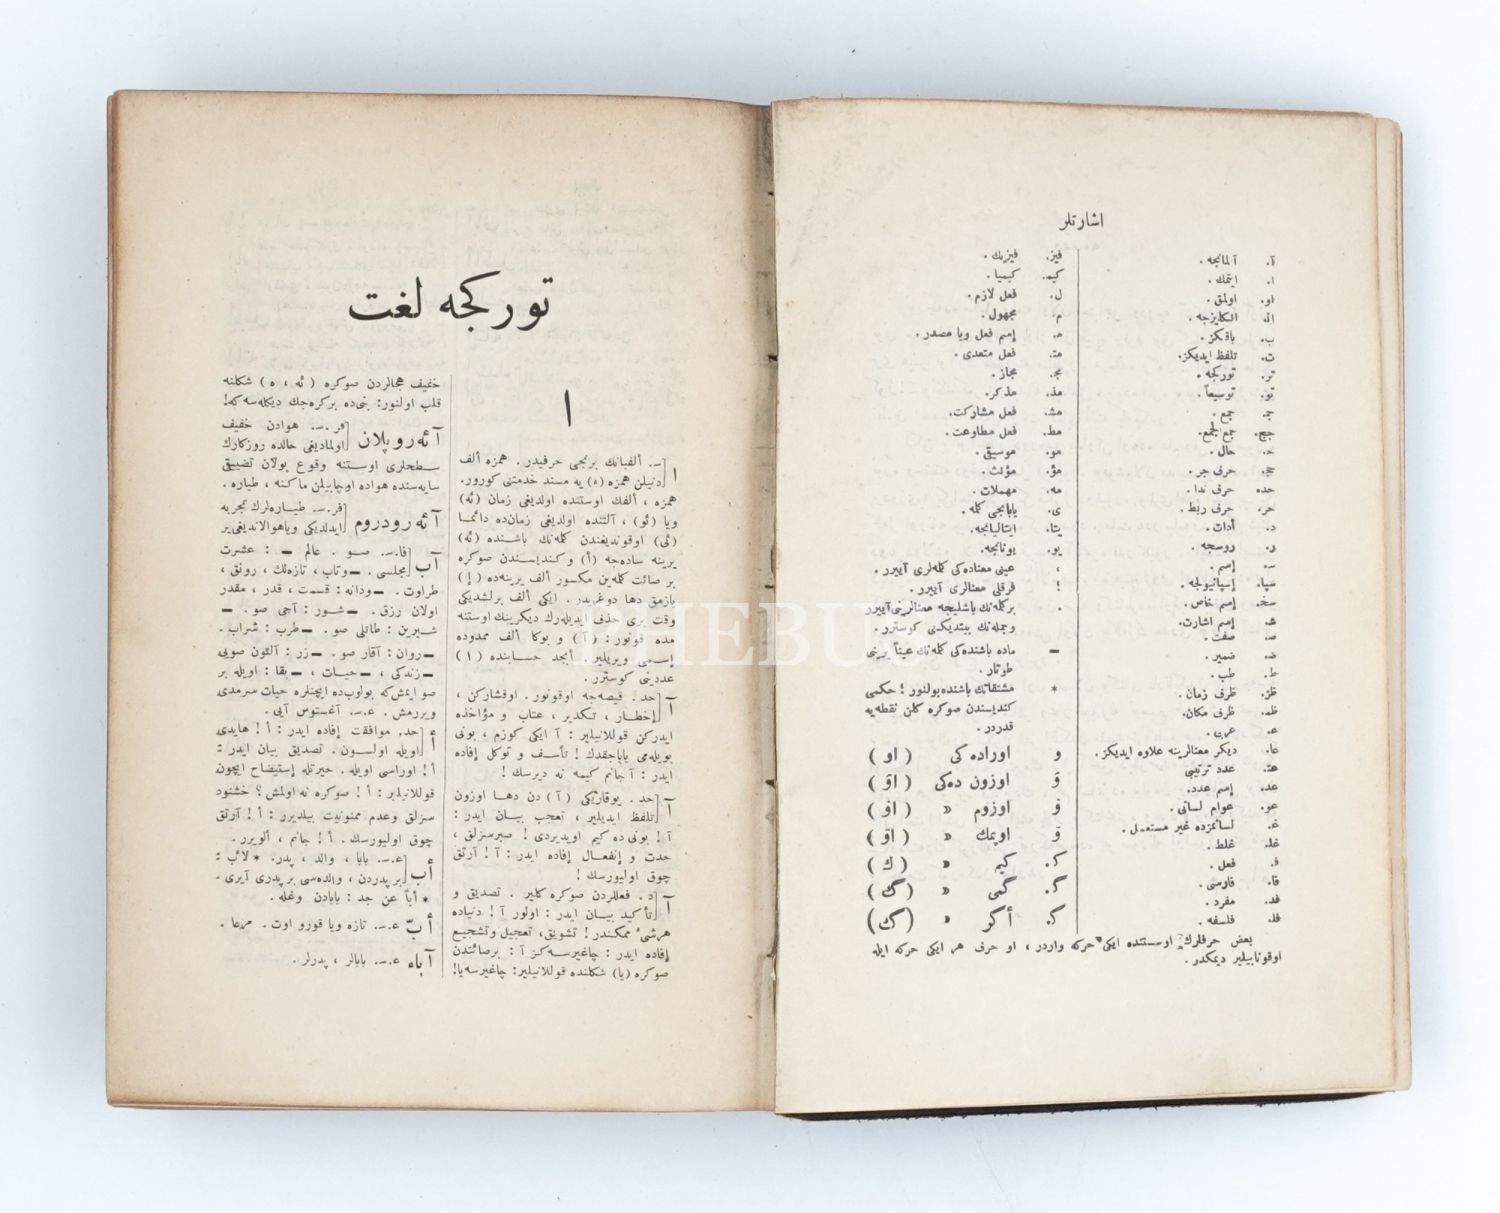 اشارتلر
آ. آلمانجه .
ا. ايتمك .
او. اولمق .
انـ. انكليزجه .
ب. باقكز .
ت. تلفظ ايديكز.
تر. توركجه .
تو. توسيعاً .
جـ. جمع .
جج. جمع الجمع.
حـ. حال .
حج. حرف جر .
حد. حرف ندا .
حر. حرف ربط .
د. أدات .
ر. روسجه .
سـ. إسم .
سپا. إسپانيولجه .
سخـ. إسم خاص .
شـ. إسم اشارت.
صـ. صفت .
ضـ. ضمير .
طـ. طب .
ظز. ظرف زمان .
ظمـ. ظرف مكان.
عـ. عربى .
عا. ديكر معنالرينه علاوه ايديكز.
عتـ. عدد ترتيبى
عد. إسم عدد.
عو. عوام لسانى .
غـ. لسانمزده غير مستعمل .
غلـ. غلط .
فـ. فعل .
فا. فارسى .
فد. مفرد .
فلـ. فلسفه .
فيز. فيزيك .
كيمـ. كيميا .
ل. فعل لازم .
م. مجهول .
مـ. إسم فعل ويا مصدر .
متـ. فعل متعدى .
مجـ. مجاز .
مذ. مذكر.
مشـ. فعل مشاركت.
مط. فعل مطاوعت.
مو. موسيقى .
مؤ. مؤنث.
مهـ. مهملات .
ى. يابانجى كله .
يتا. ايتاليانجه.
يو. يونانجه.
، عينى معناده‌كى كله‌لرى آييرر .
؛ فرقلى معنالرى آييرر .
. بركله‌نك باشليجه معنالرينى آييرر
وجمله‌نك بيتديكنى كوسترر .
— ماده باشنده‌كى كله‌نك عيناً يرينى
طوتار .
* مشتقاتك باشنده بولنور ؛ حكمى
كنديسندن صوكره كلن نقطه‌يه
قدردر .
و اوراده كى ( او )
اوزون ده‌كى
اوزوم »
اوپمك »
ك. كيم » ( ك )
كمى »
أكر »
بعض حرفلرك اوستنده ايكى حركه واردر ، او حرف هر ايكى حركه ايله
اوقونابيلير ديمكدر .
توركجه لغت
ا
ا [ـسـ. ألفبانك برنجى حرفيدر . همزه ألف
دنيلن همزه (ء) يه مسند خدمتنى كورور.
همزه ، ألفك اوستنده اولديغى زمان (ئه)
ويا (ئو) ، آلتنده اولديغى زمان‌ده دائما
(ئى) اوقونديغندن كله‌نك باشنده (ئه)
يرينه ساده‌جه (أ) و كنديسندن صوكره
بر صائت كله‌ين مكسور ألف يرينه‌ده (إ)
يازمق دها دوغريدر . ايكى ألف برلشديكى
وقت برى حذف ايديله‌رك ديكرينك اوستنه
مده قونور : ( آ ) و بوكا ألف ممدوده
إسمى ويريلير . أبجد حسابنده ( ١ )
عددينى كوسترر .
آ [حد. قيصه‌جه اوقونور. اوقشاركن ،
إخطار ، تكدير ، عتاب و مؤاخذه
ايدركن قوللانيلير: آ ايكى كوزم ، بونى
بويله‌مى ياپاجقدك ! تأسف و توكل إفاده
ايدر : آ جانم كيمه نه ديرسك !
آ [حد. يوقاريكى (آ) دن دها اوزون
تلفظ ايديلير ، تعجب بيان ايدر :
آ ! بونى ده كيم اويديردى ! صبرسزلق ،
حدت و إنفعال إفاده ايدر : آ ! آرتق
چوق اوليورسك !
آ [د. فعللردن صوكره كلير . تصديق و
تأكيد بيان ايدر : اولور آ ! دنياده
هرشىٔ ممكندر ! تشويق، تعجيل وتشجيع
إفاده ايدر : چاغيرسه‌كز آ : برصائتدن
صوكره (يا) شكلنده قوللانيلير: چاغيرسه‌يا!
خفيف هجالردن صوكره ( ئه ، ه ) شكلنه
قلب اولنور: بنى‌ده بركره‌جك ديكله‌سه‌كه!
آئه‌روپلان [فر . سـ. هوادن خفيف
اولماديغى حالده روزكارك
سطحلرى اوستنه وقوع بولان تضييقى
سايه‌سنده هواده اوچابيلن ماكنه ، طياره .
آئه‌رودروم [فر. سـ. طياره‌لرك تجربه
ايدلديكى وياهوالانديغى‌ير
آب [فا. سـ. صو . عالم — : عشرت
مجلسى . — وتاب ، تازه‌لك ، رونق ،
طراوت . — ودانه : قسمت ، قدر ، مقدر
اولان رزق . — شور : آجى صو . —
شيرين : طاتلى صو. — طرب : شراب .
— روان : آقار صو . — زر : آلتون صويى
— زندكى ، — حيات ، — بقا : اويله بر
صو ايمش‌كه بولوب‌ده ايچنلره حيات سرمدى
ويررمش . عـ. سـ. آغستوس آيى .
أ [حد. موافقت إفاده ايدر : أ ! هايدى
اويله اولسون. تصديق بيان ايدر :
أ ! اوراسى اويله. حيرتله إستيضاح ايچون
قوللانيلير: أ ! صوكره نه اولمش؟ خشنود
سزلق وعدم ممنونيت بيلديرر : أ ! آرتق
چوق اوليورسك. أ ! جانم ، ألويرر.
أب [عـ. سـ. بابا ، والد ، پدر. * لأب :
بر پدردن ، والده‌سى بر پدرى آيرى .
* أباً عن جد : بابادن وغله .
أبّ عـ. سـ. تازه ويا قورو اوت . مرعا .
آباء عـ. سـ. بابالر ، پدرلر .
PHEBUS